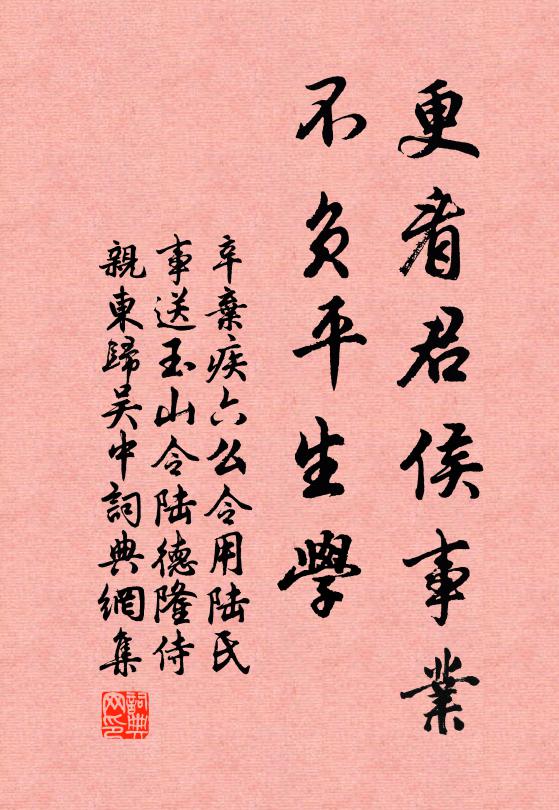 更看君侯事業
不負平生學
辛棄疾六幺令用陸氏
事送玉山令陸德隆侍
親東歸吳中詞典網集
詞典网印